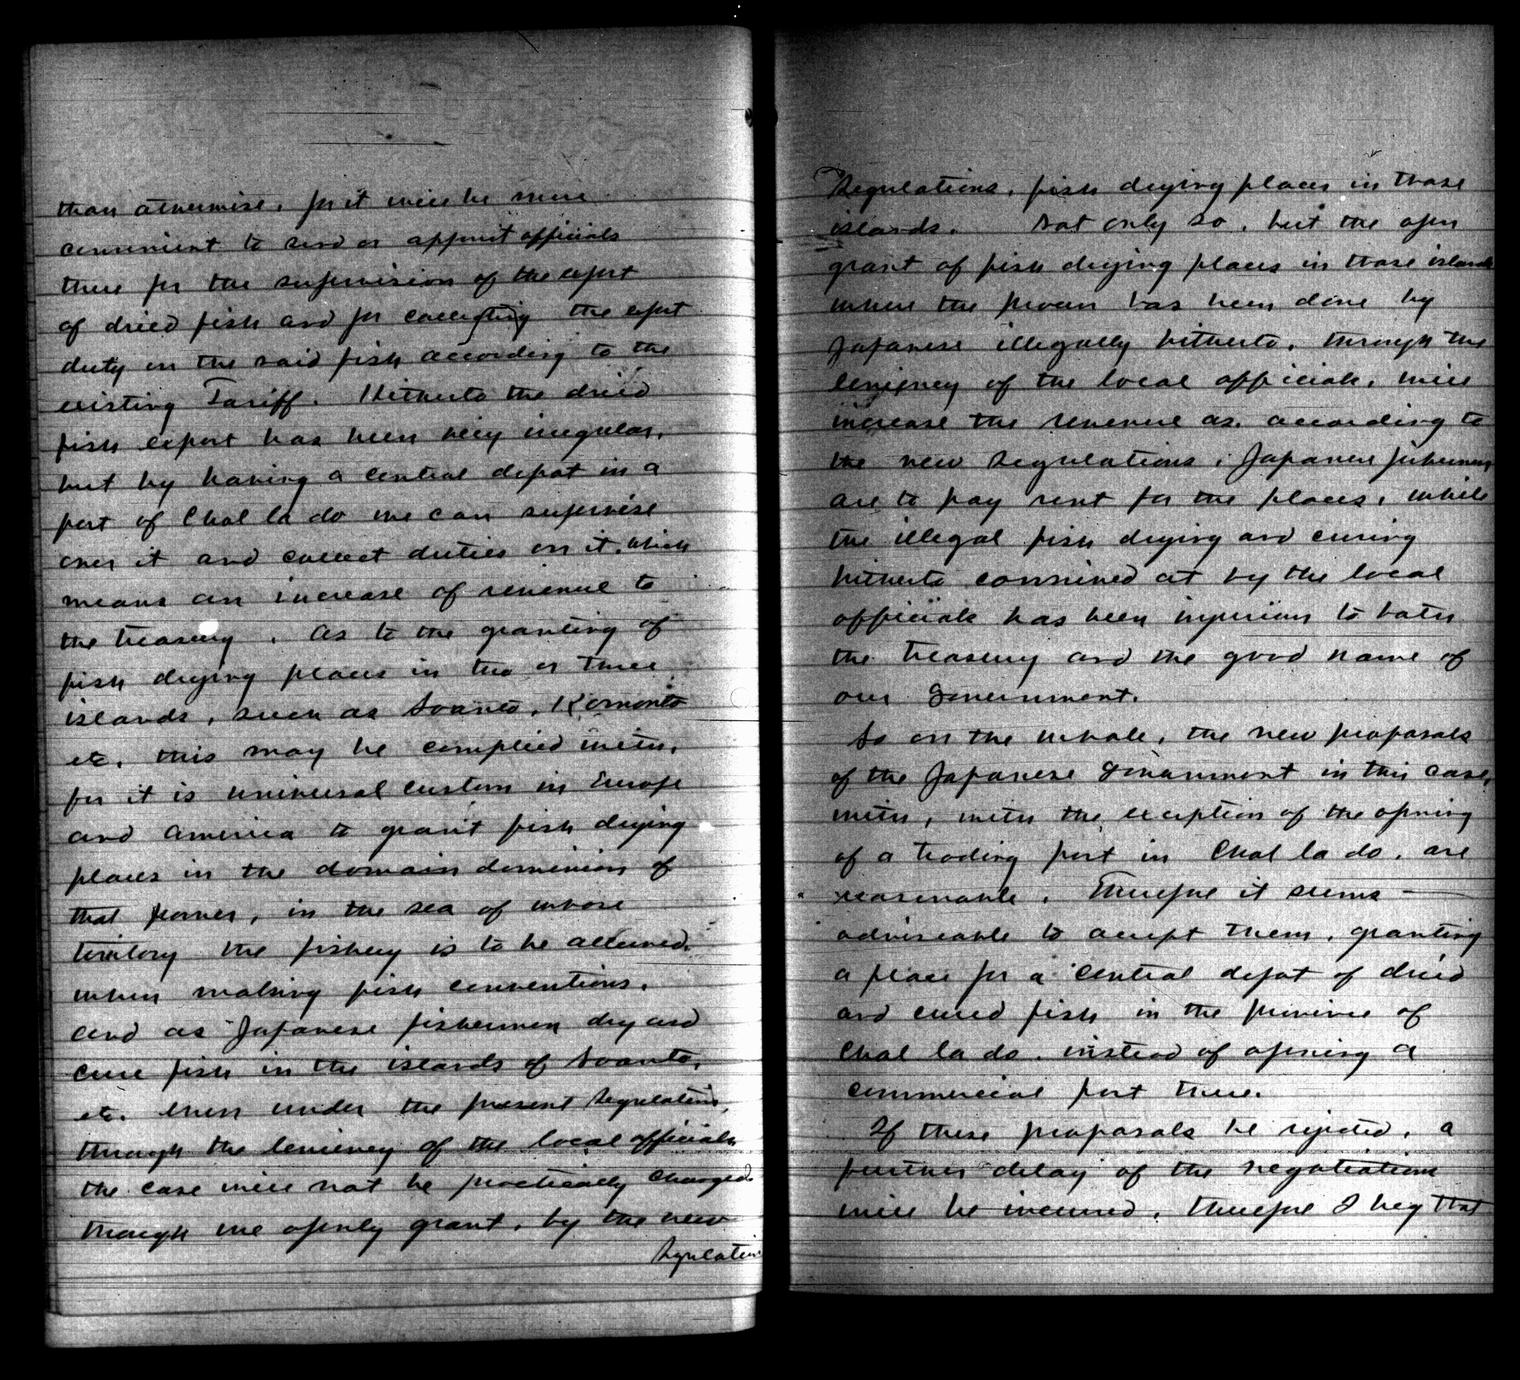 than otherwise, for it will be more
convenient to send or appoint officials
there for the supervision of the export
of dried fish and for collecting the export
duty on the said fish according to the
existing Tariff. Hitherto the dried
fish export has been very irregular,
but by having a central depot in a
port of Chal la do we can supervise
over it and collect duties on it, which
means an increase of revenue to
the treasury. As to the granting of
fish drying places in two or three
islands, such as Soanto, Komonto
etc. this may be complied with,
for it is universal custom in Europe
and America to grant fish drying
places in the domain dominion of
that power, in the sea of whose
territory the fishery is to be allowed,
when making fish conventions.
and as Japanese fishermen dry and
cure fish in the islands of Soanto,
etc. even under the present Regulations,
through the leniency of the local officials,
the case will not be practically changed
though we openly grant, by the new
Regulations
Regulations, fish drying places in those
islands. Not only so, but the open
grant of fish drying places in those islands
where the has been done by
Japanese illegally hitherto, through the
leniency of the local officials, will
increase the revenue as, according to
the new Regulations, Japanese fishermen
are to pay rent for the places, while
the illegal fish drying and curing
hitherto connived at by the local
officials has been injurious to both
the treasury and the good name of
our Government.
So on the whole, the new proposals
of the Japanese Government in this case,
with, with the exception of the opening
of a trading port in Chal la do, are
reasonable. Therefore it seems
adviseable to accept them, granting
a place for a central depot of dried
and cured fish in the province of
Chal la do, instead of opening a
commercial port there.
If these proposals be rejected, a
further delay of the negotiations
will be incurred, therefore I beg that